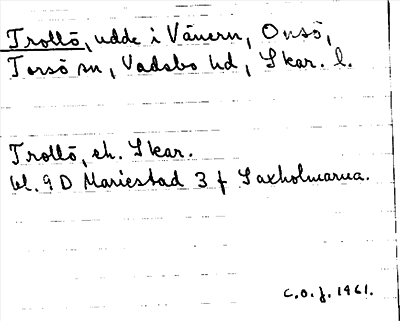 Trollö, udde i Vänern, Onsö,
Torsö sn, Vadsbo hd, Skar. l.
Trollö, ek. Skar.
bl. 9 D Mariestad 3 f Laxholmarna.
C.O.J. 1961.